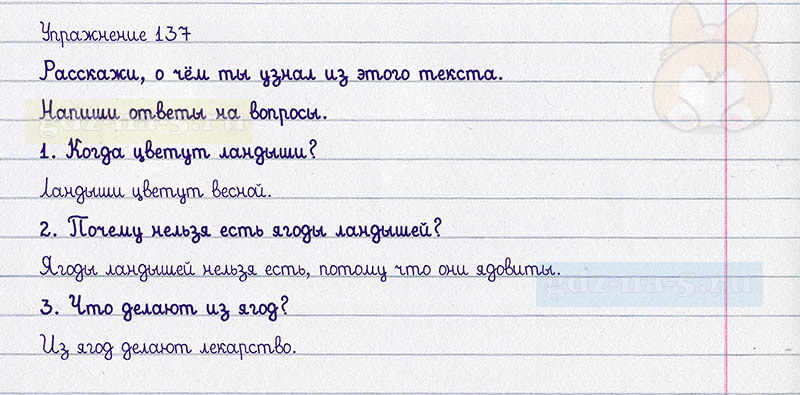 Упражнение 137
Расскажи, о чём ты узнал из этого текста.
Напиши ответы на вопросы.
1. Когда цветут ландыши?
Ландыши цветут весной.
2. Почему нельзя есть ягоды ландышей?
Ягоды ландышей нельзя есть, потому что они ядовиты.
gdz-na-5.ru
3. Что делают из ягод?
Из ягод делают лекарство.